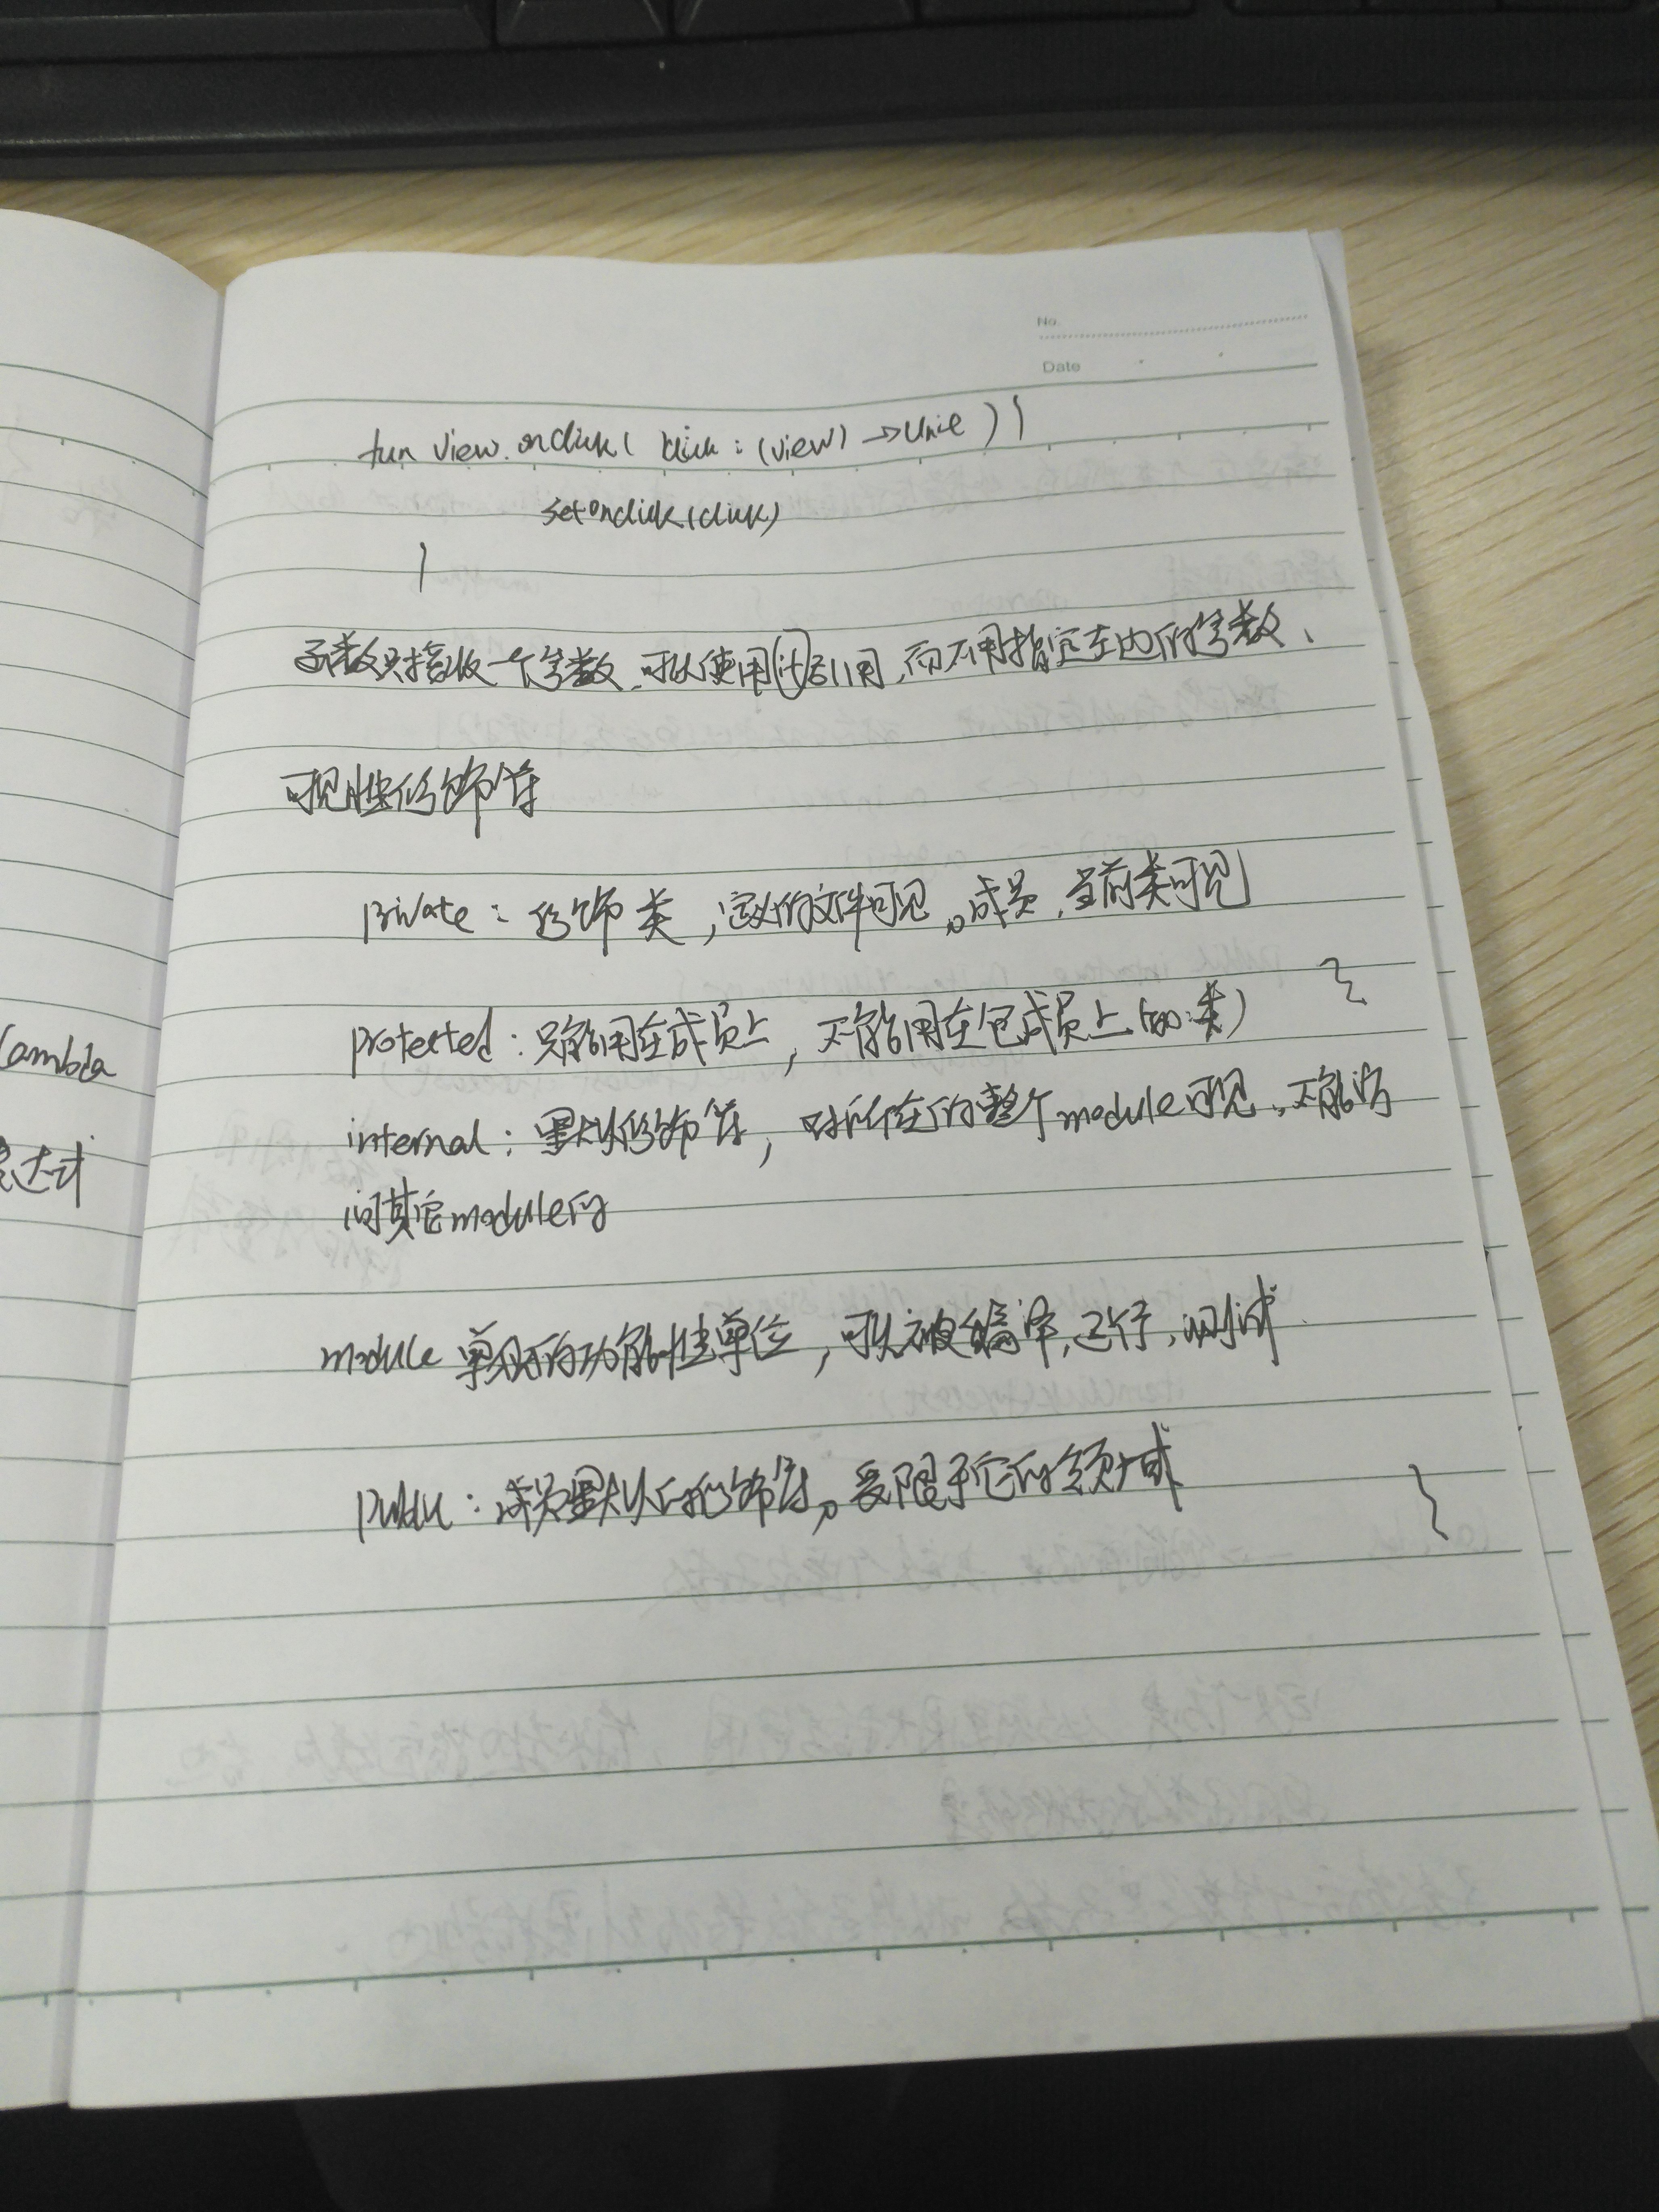 No.
Date
fun view.onclick( click : (view) → Unit ) {
setonclick(click)
}
函数只接收一个参数、可以使用it引用,而不用指定左边的参数、
可见性修饰符
private : 修饰类,定义的文件可见。成员、当前类可见
protected : 只能用在成员上,不能用在包成员上(如:类)
internal : 默认修饰符,对所在的整个module可见、不能访
问其它module的
module 单独的功能性单位,可以被编译、运行、测试
public : 成员默认的修饰符。受限于它的领域
Lambda